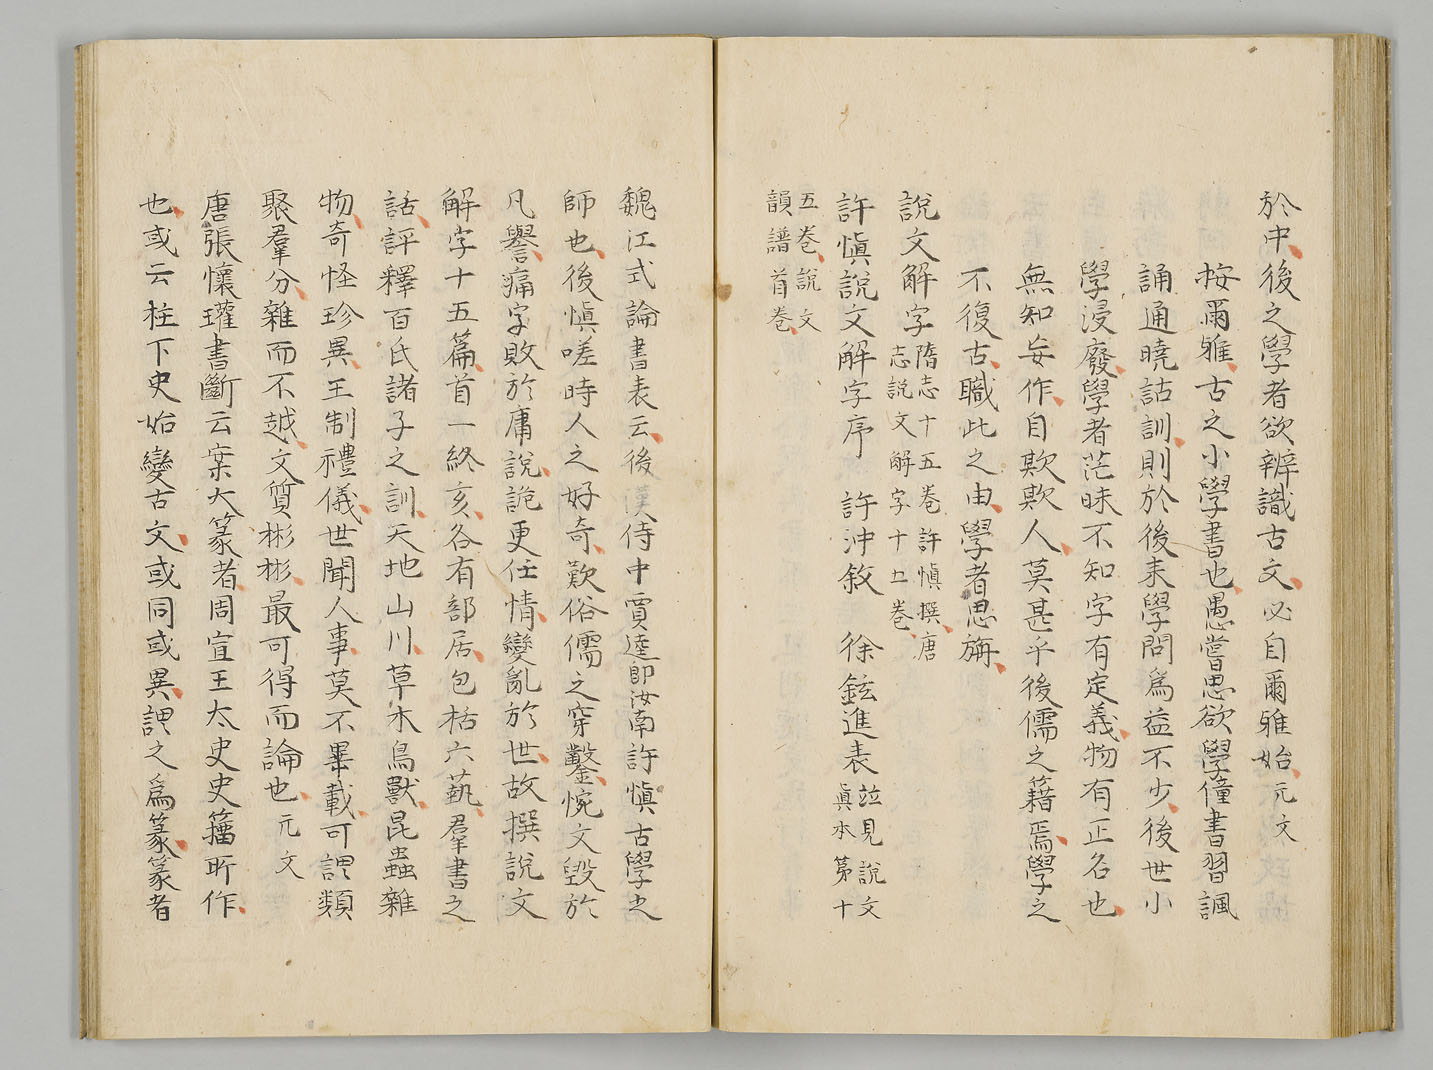 於中後之學者欲辨識古文必自爾雅始元文
桉爾雅古之小學書也愚嘗思欲學僮書習諷
誦通曉詁訓則於後來學問爲益不少後世小
學浸廢學者茫昧不知字有定義物有正名也
無知妄作自欺欺人莫甚乎後儒之籍焉學之
不復古職此之由學者思旃
說文解字隋志十五卷許愼撰唐
志說文解字十五卷
許愼說文解字序 許沖敘 徐鉉進表竝見說文
眞本第十
五卷說文
韻譜首卷
魏江式論書表云後漢侍中賈逵卽汝南許愼古學之
師也後愼嗟時人之好奇歎俗儒之穿鑿惋文毀於
凡譽痛字敗於庸說詭更任情變亂於世故撰說文
解字十五篇首一終亥各有部居包括六藝羣書之
詁評釋百氏諸子之訓天地山川草木鳥獸昆蟲雜
物奇怪珍異王制禮儀世閒人事莫不畢載可謂類
聚羣分雜而不越文質彬彬最可得而論也元文
唐張懷瓘書斷云案大篆者周宣王太史史籒所作
也或云柱下史始變古文或同或異謂之爲篆篆者